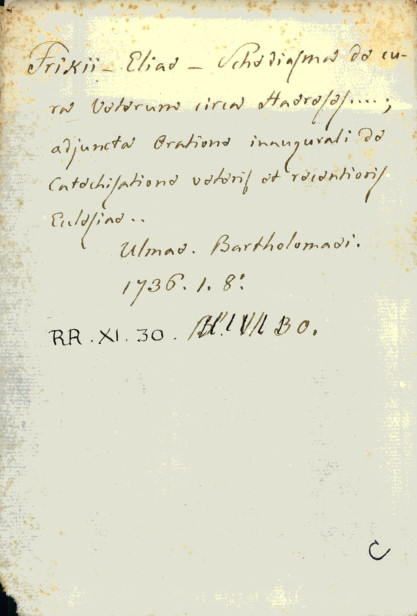 Frikii - Eliae - Schediasma de cu-
ra Veterum circa Haereses....;
adjuncta Oratione inaugurali de
Catechisatione veteris et recentioris
Eclesiae..
Ulmae. Bartholomaei.
1736. 1. 8º.
RR. XI. 30. 30.
C